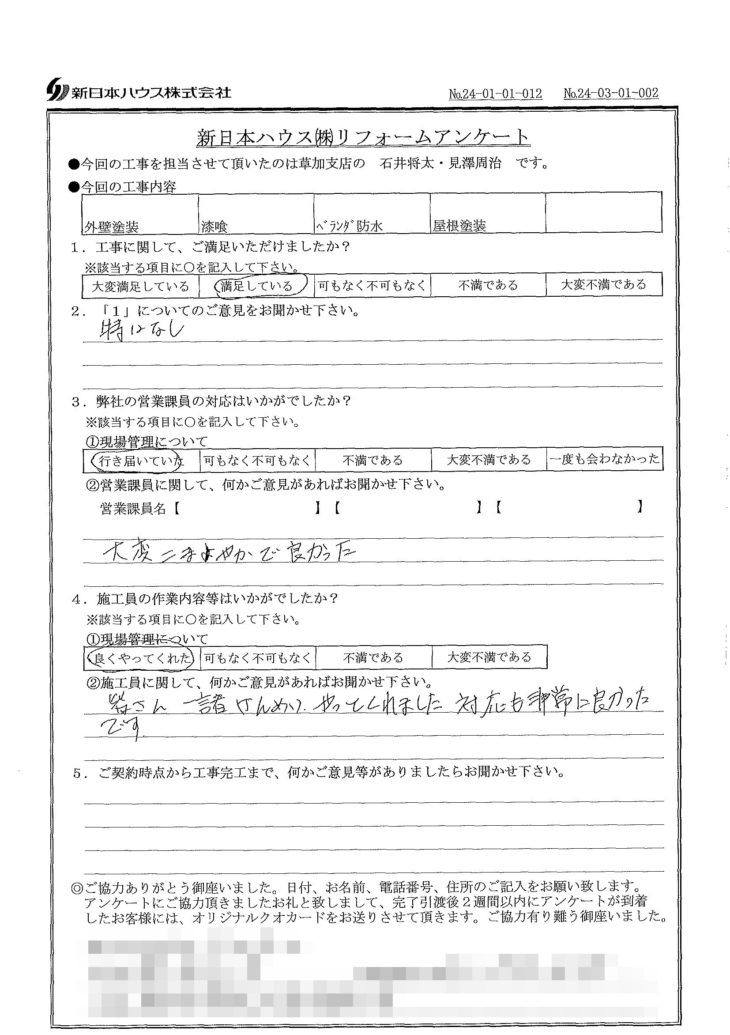 新日本ハウス株式会社
№24-01-01-012 №24-03-01-002
新日本ハウス㈱リフォームアンケート
●今回の工事を担当させて頂いたのは草加支店の 石井将太・見澤周治 です。
●今回の工事内容
外壁塗装 漆喰 ﾍﾞﾗﾝﾀﾞ防水 屋根塗装
1．工事に関して、ご満足いただけましたか？
※該当する項目に〇を記入して下さい。
大変満足している 満足している 可もなく不可もなく 不満である 大変不満である
2．「1」についてのご意見をお聞かせ下さい。
特になし
3．弊社の営業課員の対応はいかがでしたか？
※該当する項目に〇を記入して下さい。
①現場管理について
行き届いていた 可もなく不可もなく 不満である 大変不満である 一度も会わなかった
②営業課員に関して、何かご意見があればお聞かせ下さい。
営業課員名【 】【 】【 】
大変こまやかで良かった
4．施工員の作業内容等はいかがでしたか？
※該当する項目に〇を記入して下さい。
①現場管理について
良くやってくれた 可もなく不可もなく 不満である 大変不満である
②施工員に関して、何かご意見があればお聞かせ下さい。
皆さん 一諸けんめい やってくれました 対応も非常に良かった
です
5．ご契約時点から工事完工まで、何かご意見等がありましたらお聞かせ下さい。
◎ご協力ありがとう御座いました。日付、お名前、電話番号、住所のご記入をお願い致します。
アンケートにご協力頂きましたお礼と致しまして、完了引渡後2週間以内にアンケートが到着
したお客様には、オリジナルクオカードをお送りさせて頂きます。ご協力有り難う御座いました。